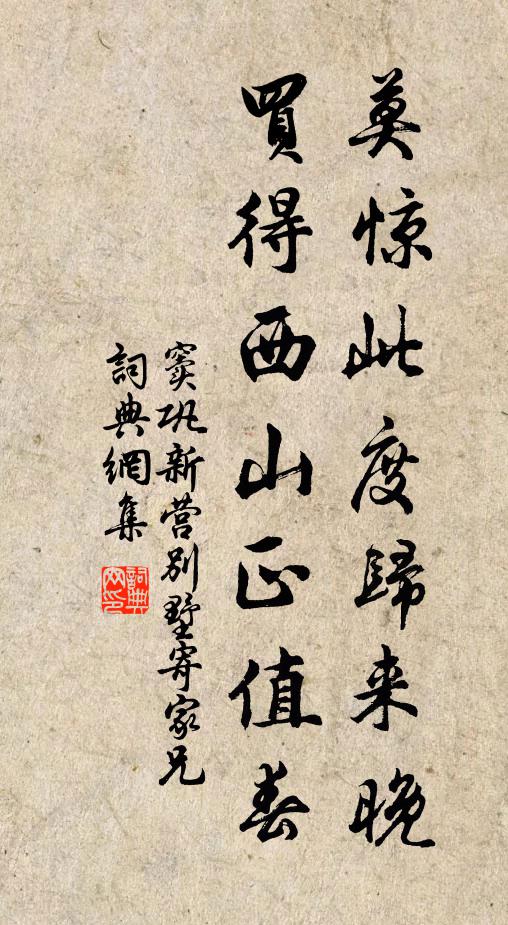 莫惊此度歸来晚
買得西山正值春
窦巩新营别墅寄家兄
詞典網集
詞典网印